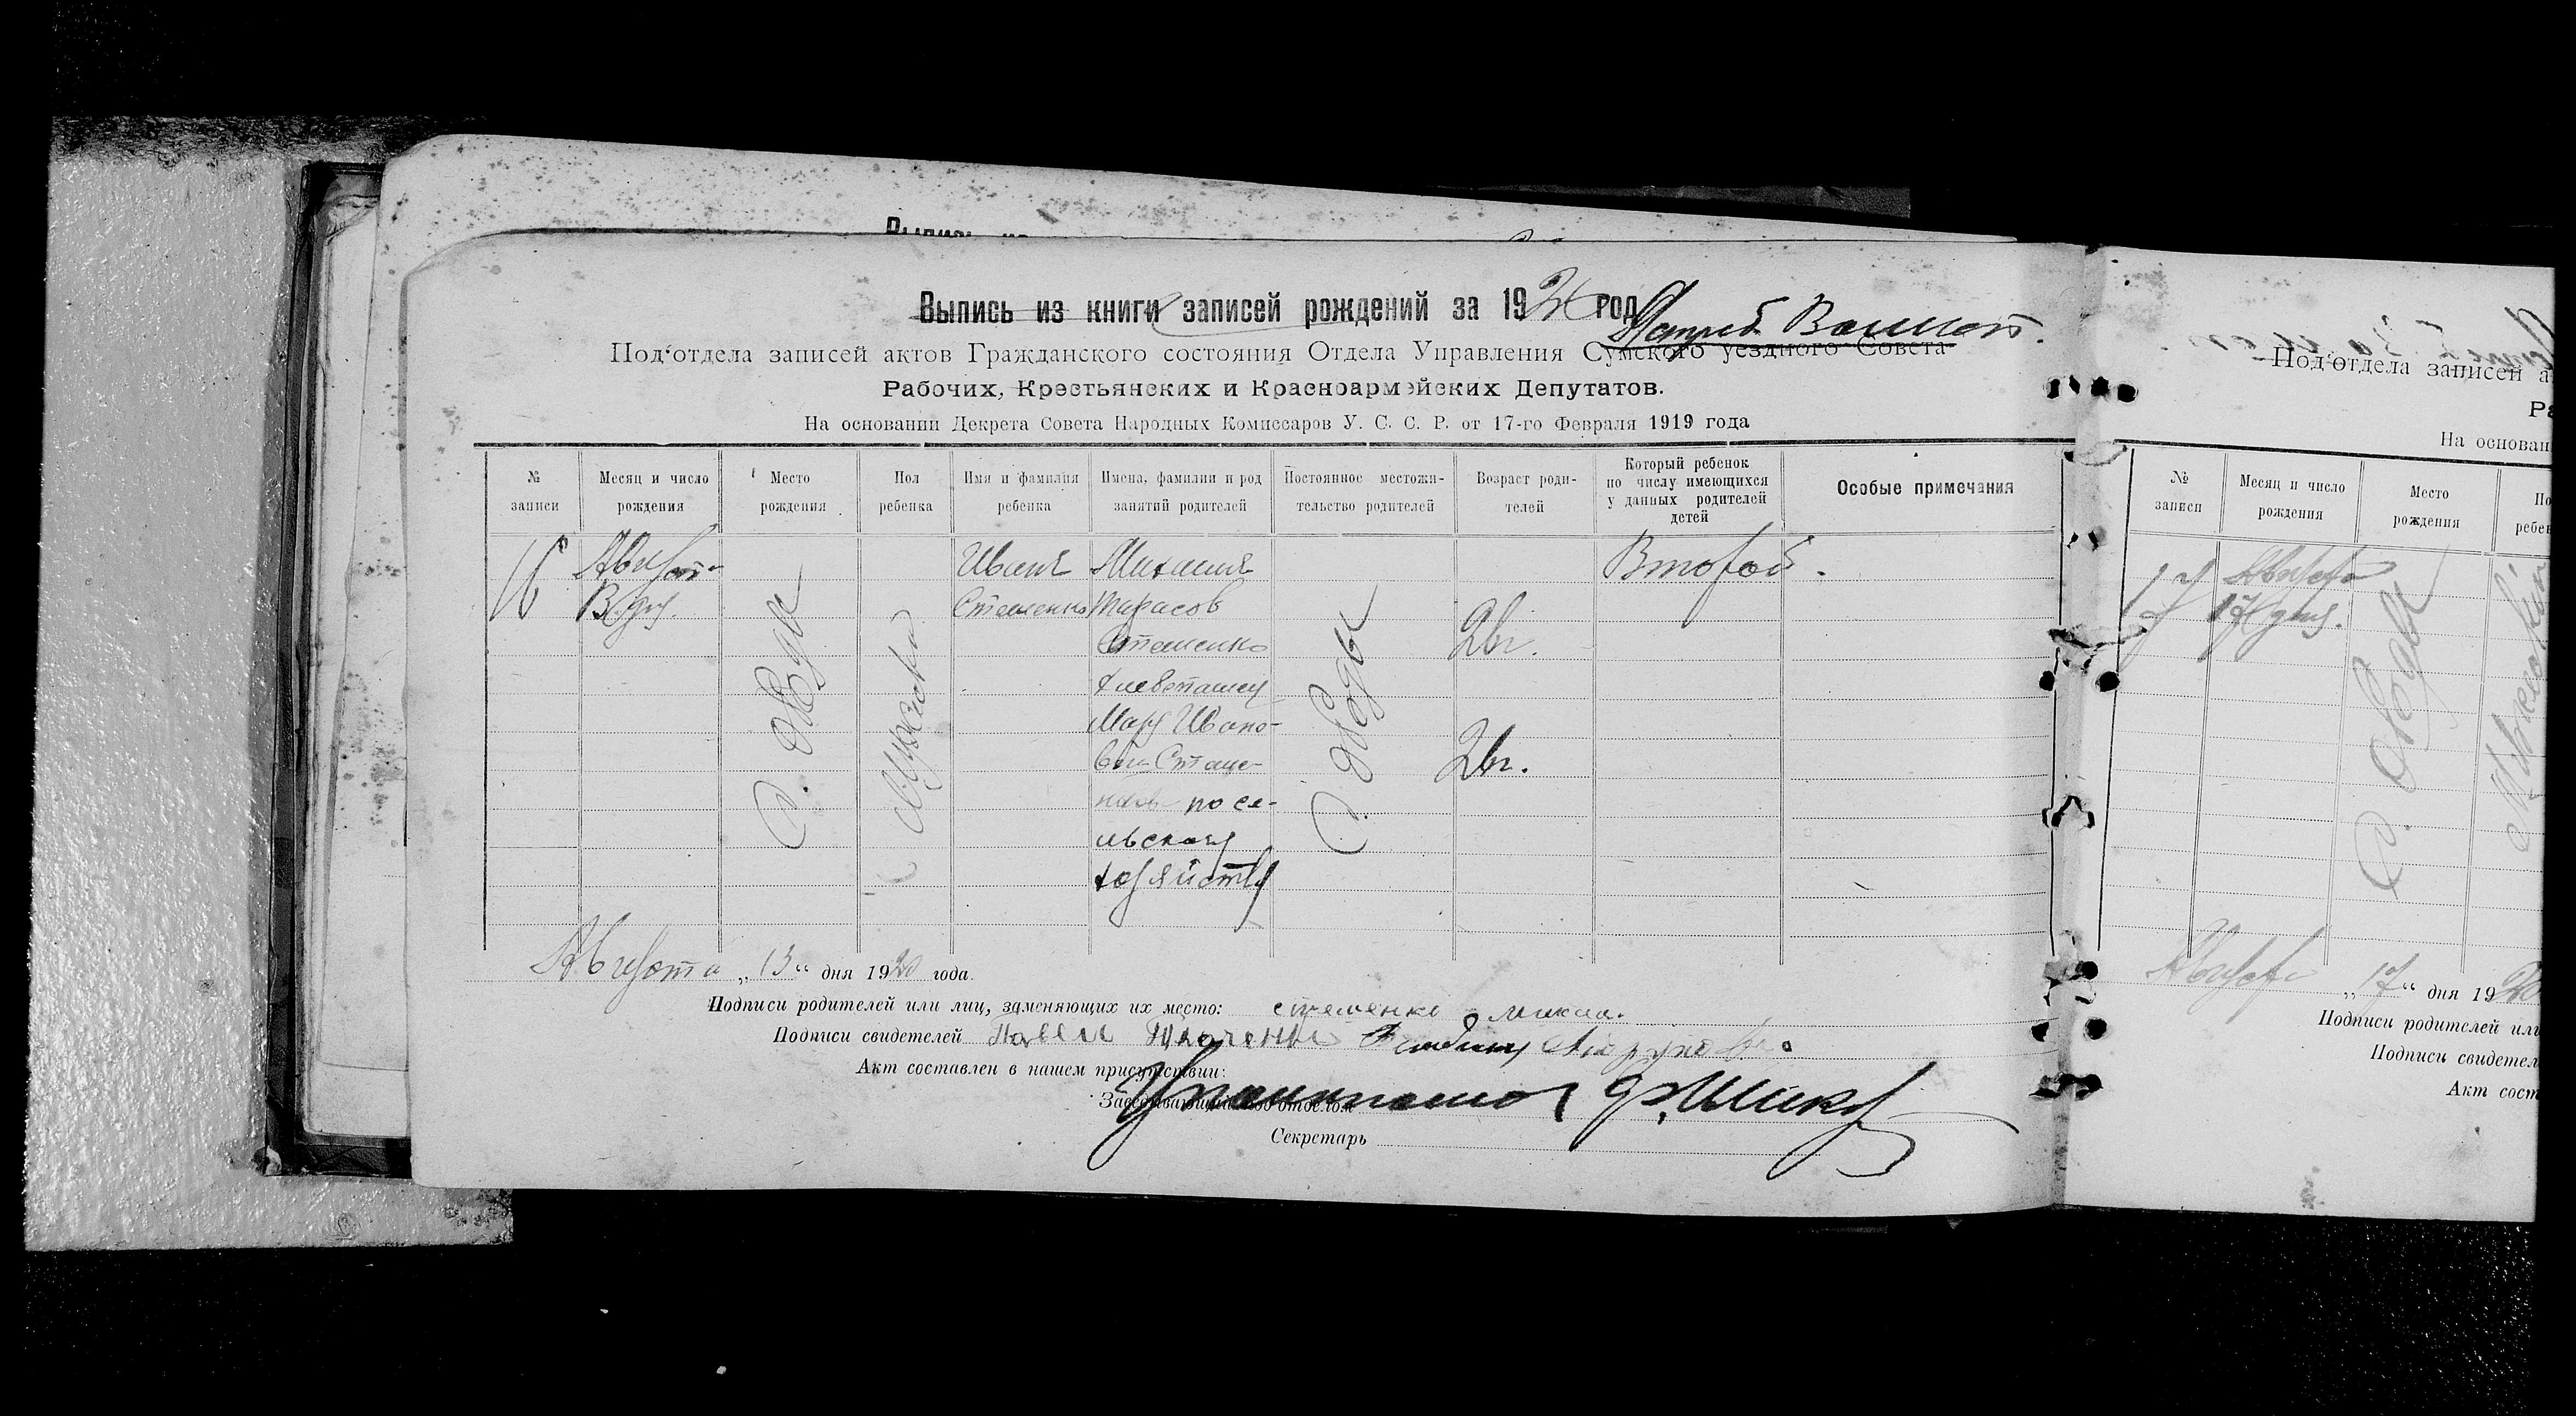 Выпись из книги записей рождений за 1920 год
Ястреб. Волост.
Под‘отдела записей актов Гражданского состояния Отдела Управления Сумского уездного Совета
Рабочих, Крестьянских и Красноармейских Депутатов.
На основании Декрета Совета Народных Комиссаров У. С. С. Р. от 17-го Февраля 1919 года
№ записи
Месяц и число рождения
Место рождения
Пол ребенка
Имя и фамилия ребенка
Имена, фамилии и род занятий родителей
Постоянное местожительство родителей
Возраст родителей
Который ребенок по числу имеющихся у данных родителей детей
Особые примечания
16
Августа
13 дня.
С.
Мужско
Иван
Стешенко
Тарасов
Стешенко
хлебопашец
Мария Ивано-
вна Стеше-
нкова по се-
льскому
хозяйству
С.
Второй.
Августа „13“ дня 1920 года.
Подписи родителей или лиц, заменяющих их место: стешенко
Подписи свидетелей Павел
Акт составлен в нашем присутствии:
Заведывающий под‘отделом
Секретарь
Под‘отдела записей а
Ра
На основан
№ записи
Месяц и число рождения
Место рождения
По
ребен
17
Августа
17 дня.
С.
Августа „17“ дня 1920
Подписи родителей или
Подписи свидетел
Акт сост